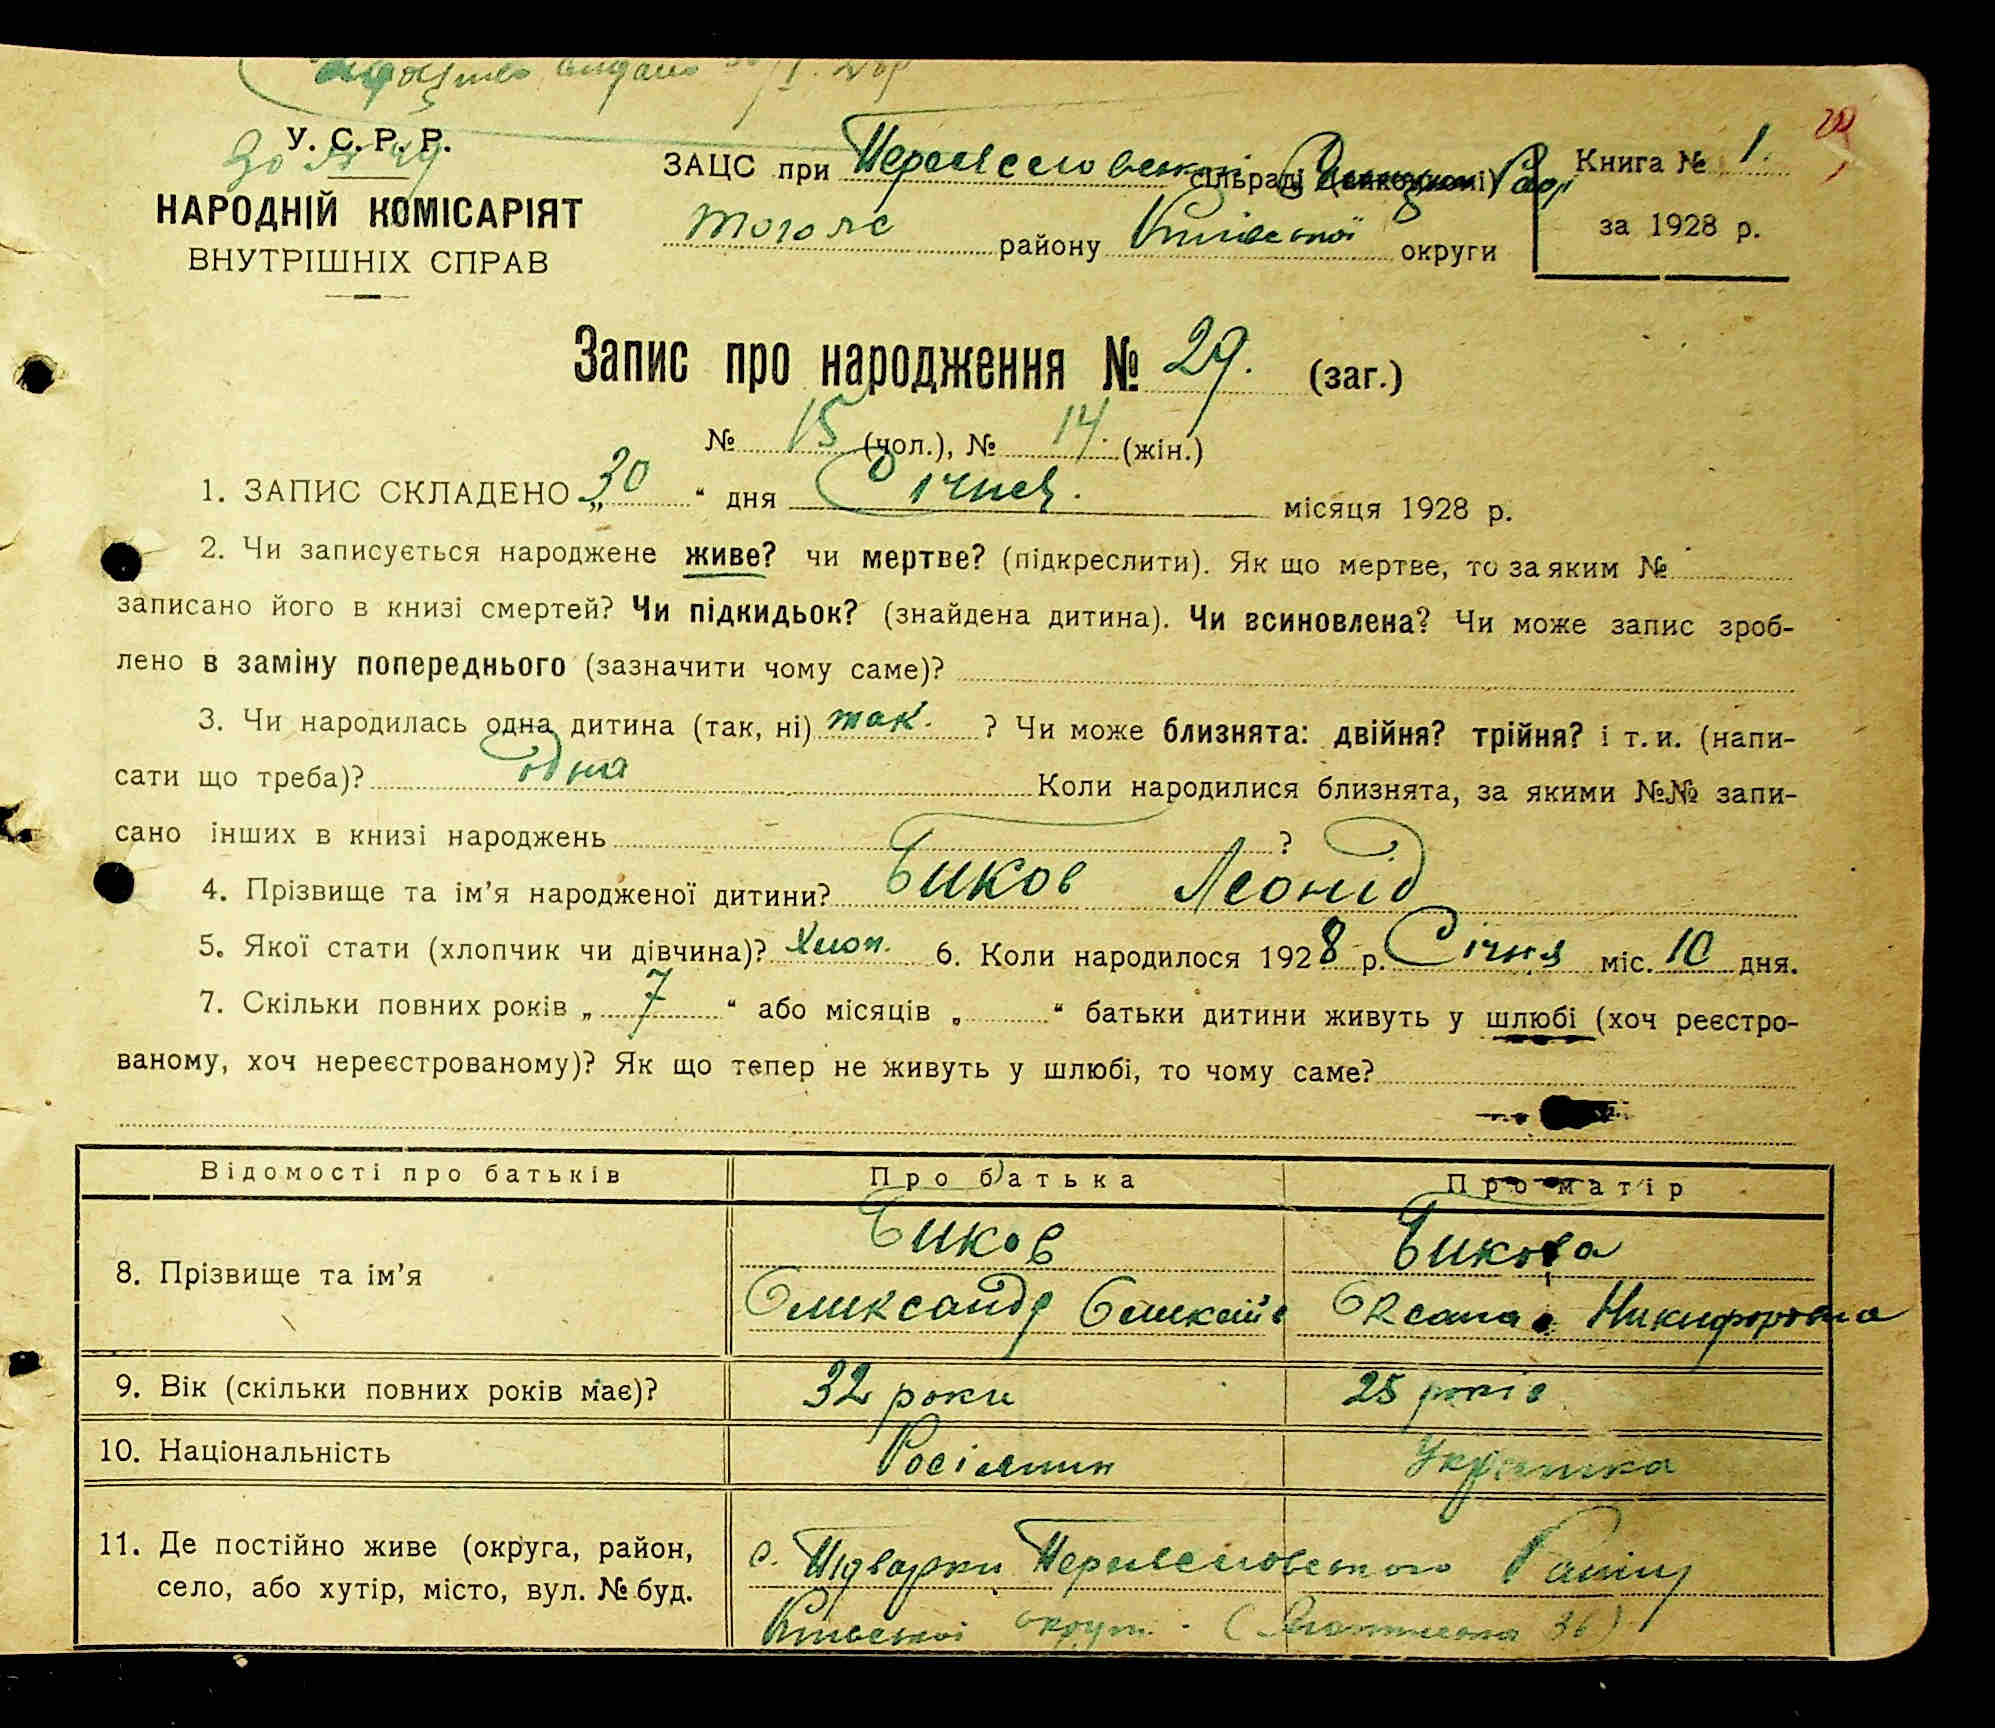 видано 30/I. 28р
У. С. Р. Р.
НАРОДНІЙ КОМІСАРІЯТ
ВНУТРІШНІХ СПРАВ
ЗАЦС при Переяславськ сільраді
того ж району Київської округи
Книга № 1.
за 1928 р.
Запис про народження № 29. (заг.)
№ 15 (чол.), № 14. (жін.)
1. ЗАПИС СКЛАДЕНО „30“ дня Січня. місяця 1928 р.
2. Чи записується народжене живе? чи мертве? (підкреслити). Як що мертве, то за яким №
записано його в книзі смертей? Чи підкидьок? (знайдена дитина). Чи всиновлена? Чи може запис зроб-
лено в заміну попереднього (зазначити чому саме)?
3. Чи народилась одна дитина (так, ні) так. ? Чи може близнята: двійня? трійня? і т. и. (напи-
сати що треба)? одна Коли народилися близнята, за якими №№ запи-
сано інших в книзі народжень ?
4. Прізвище та ім’я народженої дитини? Биков Леонід
5. Якої стати (хлопчик чи дівчина)? Хлоп. 6. Коли народилося 1928 р. Січня міс. 10 дня.
7. Скільки повних років „7“ або місяців „ “ батьки дитини живуть у шлюбі (хоч реєстро-
ваному, хоч нереєстрованому)? Як що тепер не живуть у шлюбі, то чому саме?
Відомості про батьків Про батька Про матір
8. Прізвище та ім’я
Биков
Олександр
Бикова
Оксана Никифоровна
9. Вік (скільки повних років має)? 32 роки 25 років
10. Національність Росіянин Українка
11. Де постійно живе (округа, район,
село, або хутір, місто, вул. № буд.
с. Підварки Переяславського Району
Київської округи. 36)